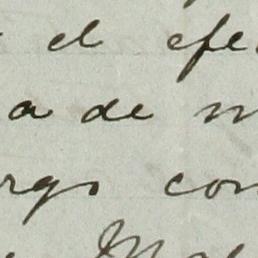 el efe
a de m
rgo con